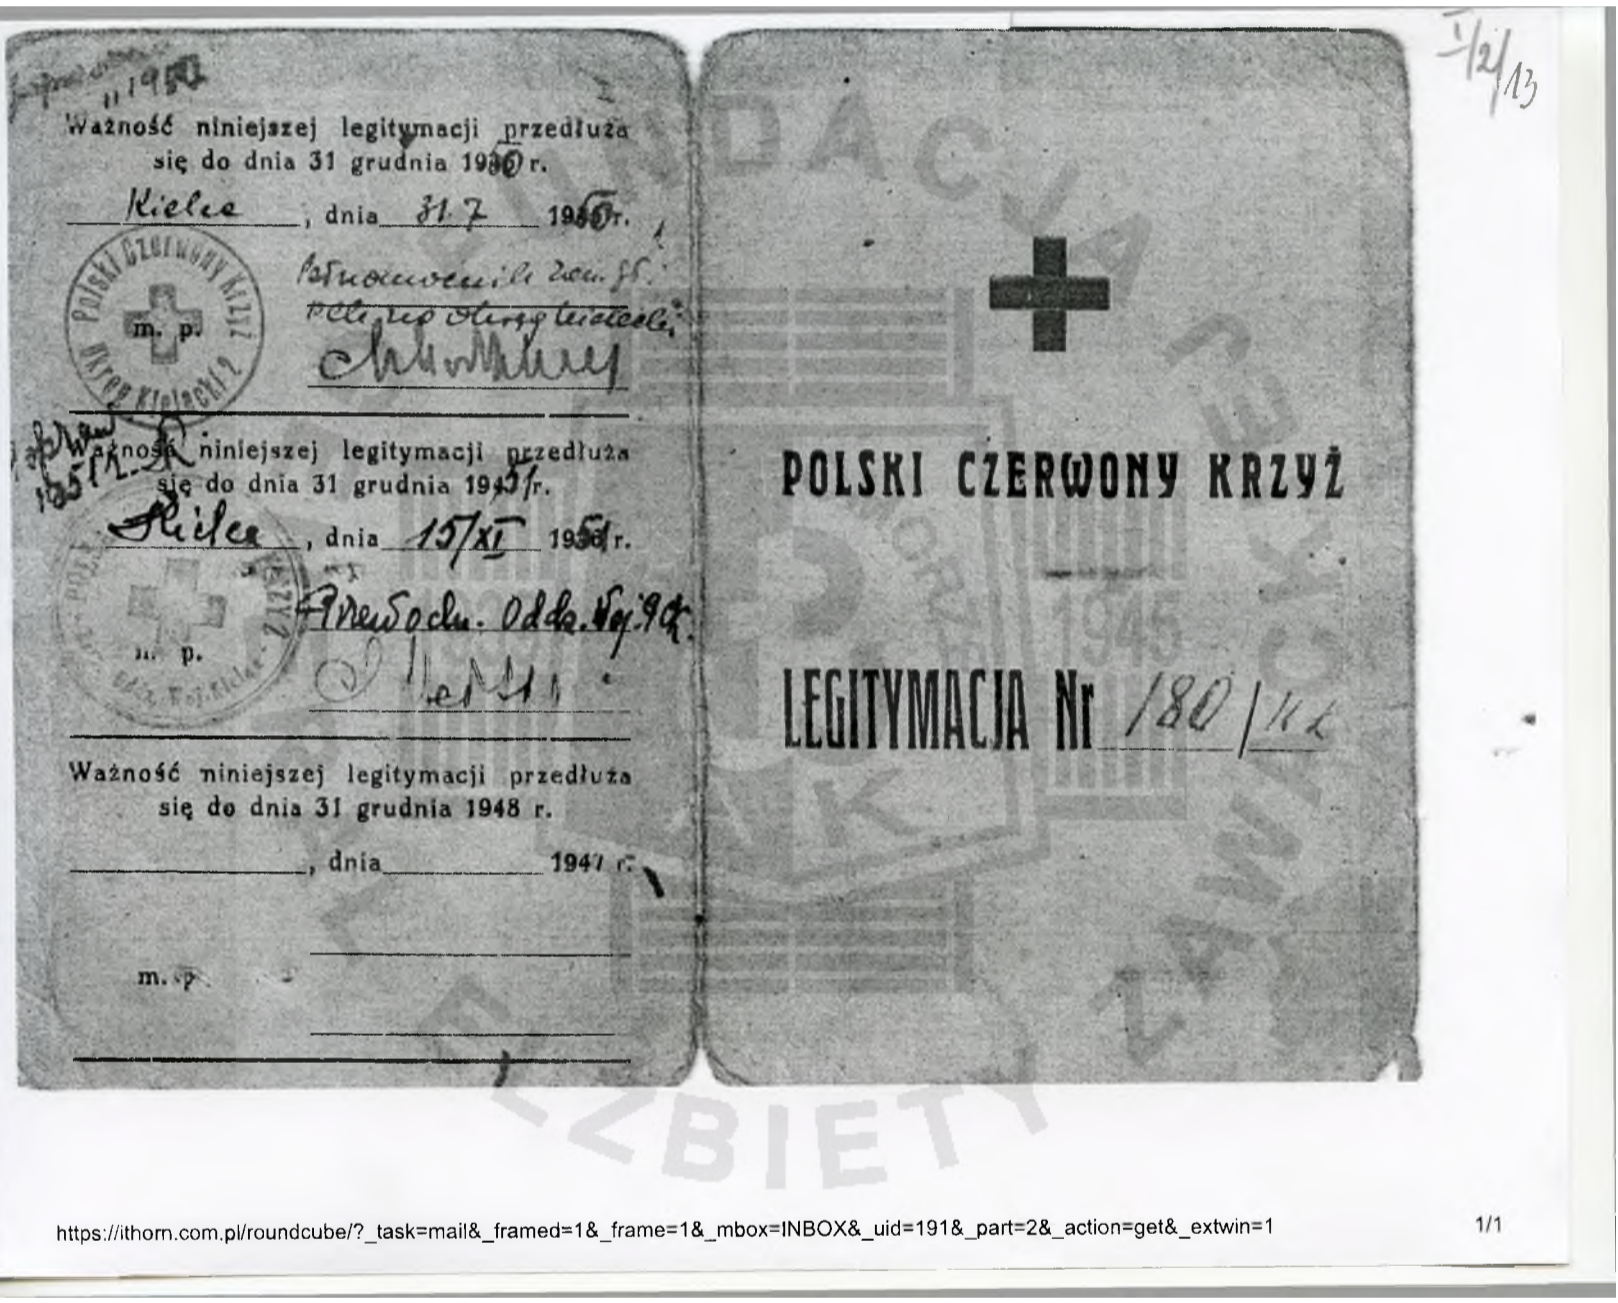 I/2/13
1950
Ważność niniejszej legitymacji przedłuża
się do dnia 31 grudnia 1950 r.
Kielce, dnia 31.7 1950 r.
Polski Czerwony Krzyż
Okręg Kielecki 2
m. p.
Pełnomocnik
Ważność niniejszej legitymacji przedłuża
się do dnia 31 grudnia 1951 r.
Kielce, dnia 15/XI 1951 r.
Przewodn. Oddz. Woj. PCK.
m. p.
Oddz. Woj. Kielce
Ważność niniejszej legitymacji przedłuża
się do dnia 31 grudnia 1948 r.
, dnia 1947 r.
m. p.
POLSKI CZERWONY KRZYŻ
LEGITYMACJA Nr 180/
FUNDACJA
GENERAŁ
ELŻBIETY ZAWACKIEJ
POMORZE
1939 1945
AK
https://ithorn.com.pl/roundcube/?_task=mail&_framed=1&_frame=1&_mbox=INBOX&_uid=191&_part=2&_action=get&_extwin=1
1/1